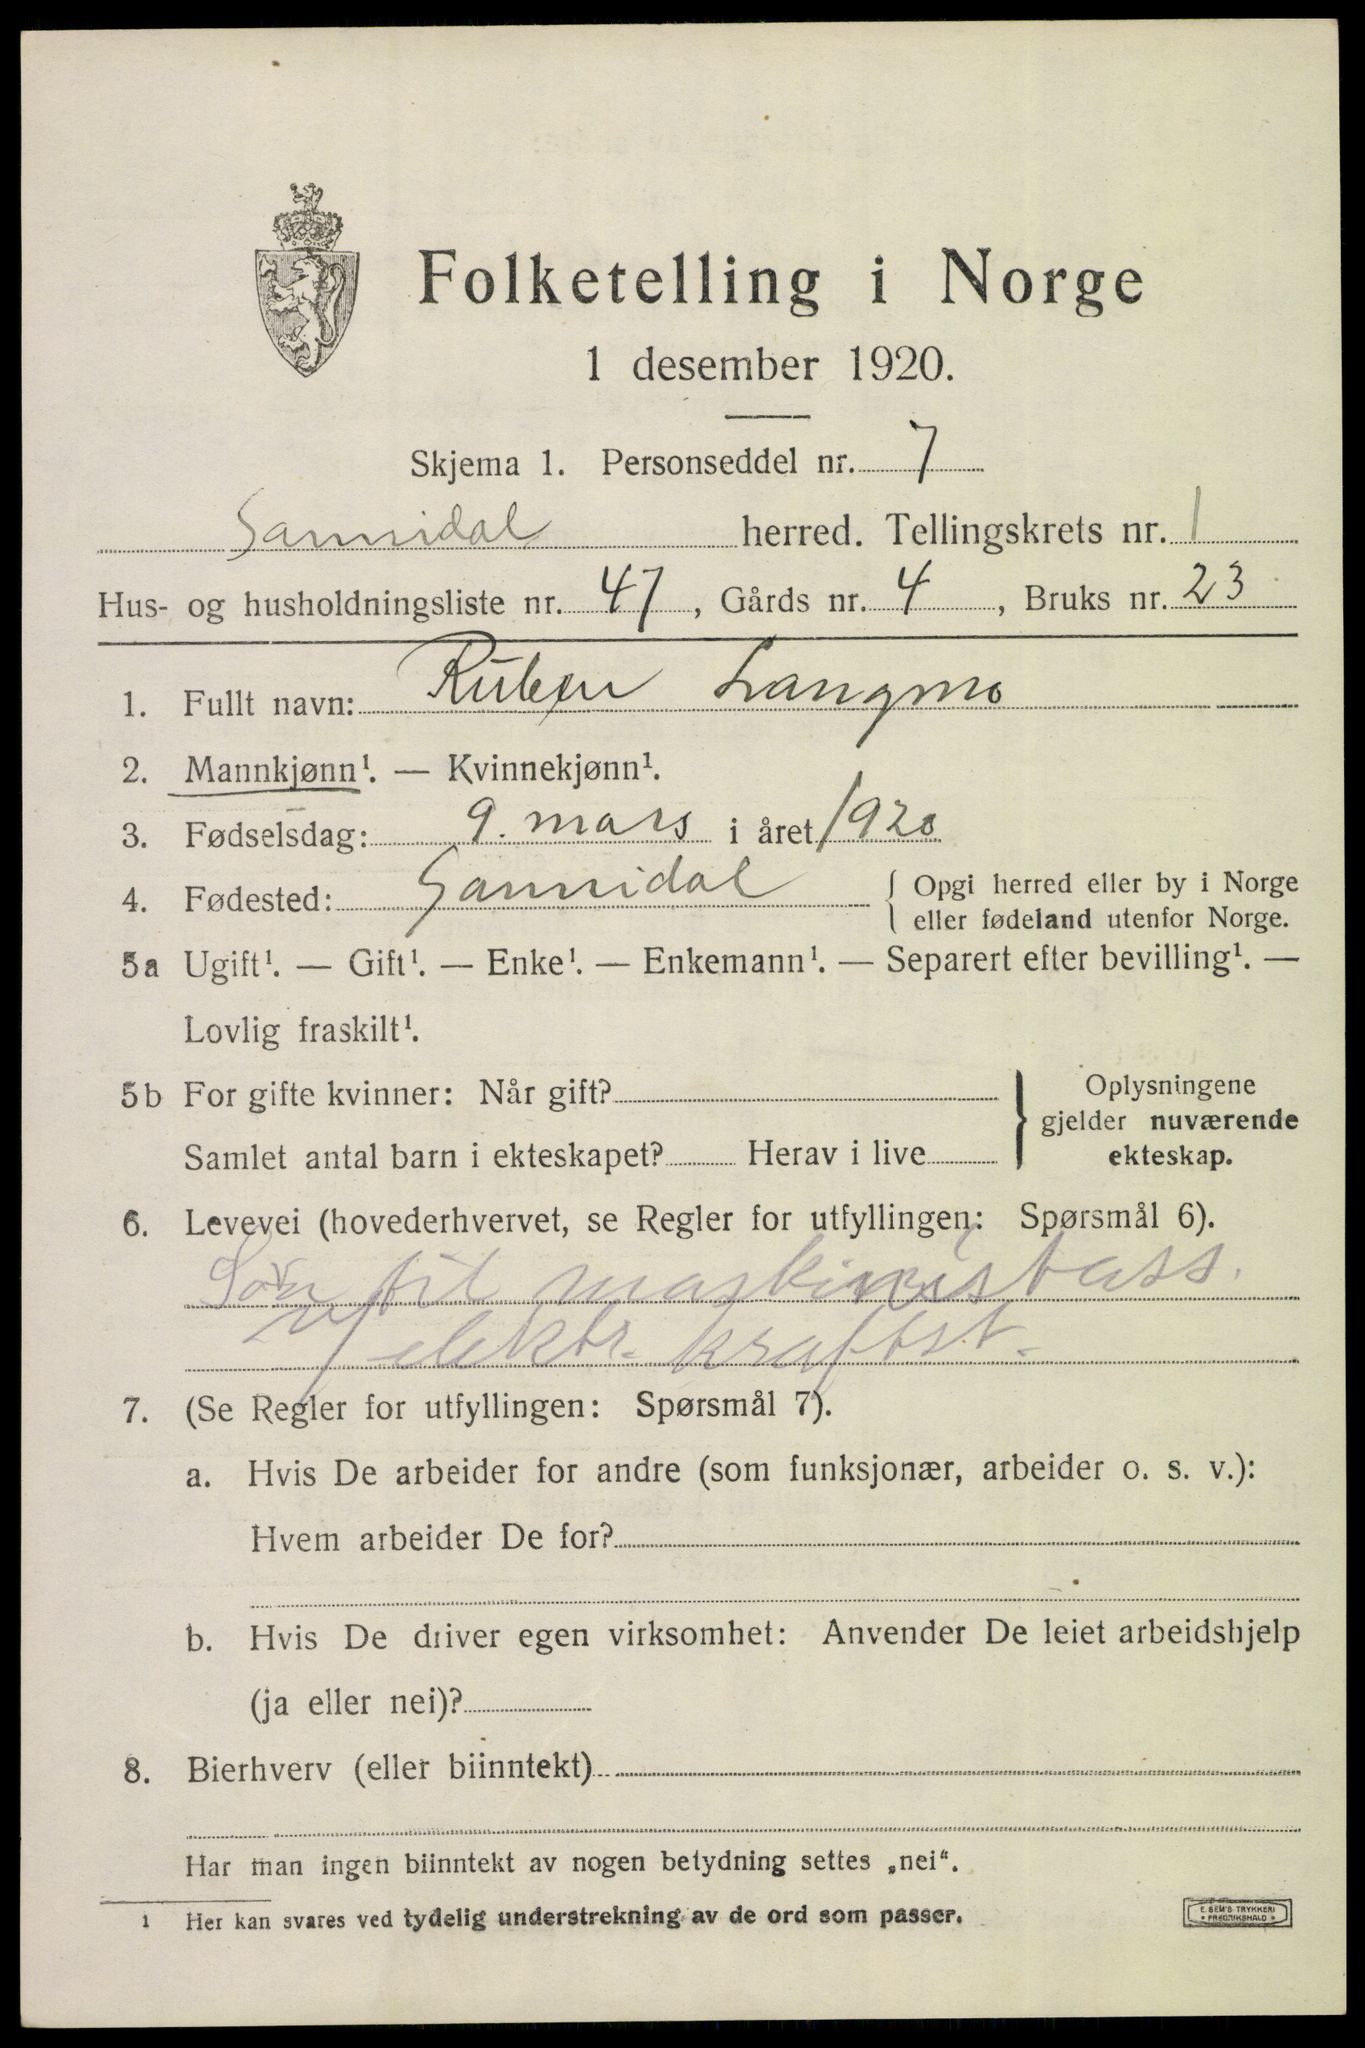 Folketelling i Norge
1 desember 1920.
Skjema 1. Personseddel nr. 7
Sannidal herred. Tellingskrets nr. 1
Hus- og husholdningsliste nr. 47, Gårds nr. 4, Bruks nr. 23
1. Fullt navn: Ruben Langmo
2. Mannkjønn¹. — Kvinnekjønn¹.
3. Fødselsdag: 9. mars i året 1920
4. Fødested: Sannidal { Opgi herred eller by i Norge
eller fødeland utenfor Norge.
5a Ugift¹. — Gift¹. — Enke¹. — Enkemann¹. — Separert efter bevilling¹. —
Lovlig fraskilt¹.
5b For gifte kvinner: Når gift? } Oplysningene
gjelder nuværende
Samlet antal barn i ekteskapet? Herav i live ekteskap.
6. Levevei (hovederhvervet, se Regler for utfyllingen: Spørsmål 6).
Søn til maskinistass.
v/ elektr. kraftst.
7. (Se Regler for utfyllingen: Spørsmål 7).
a. Hvis De arbeider for andre (som funksjonær, arbeider o. s. v.):
Hvem arbeider De for?
b. Hvis De driver egen virksomhet: Anvender De leiet arbeidshjelp
(ja eller nei)?
8. Bierhverv (eller biinntekt)
Har man ingen biinntekt av nogen betydning settes „nei“.
1 Her kan svares ved tydelig understrekning av de ord som passer.
E. SEM'S TRYKKERI
FREDRIKSHALD